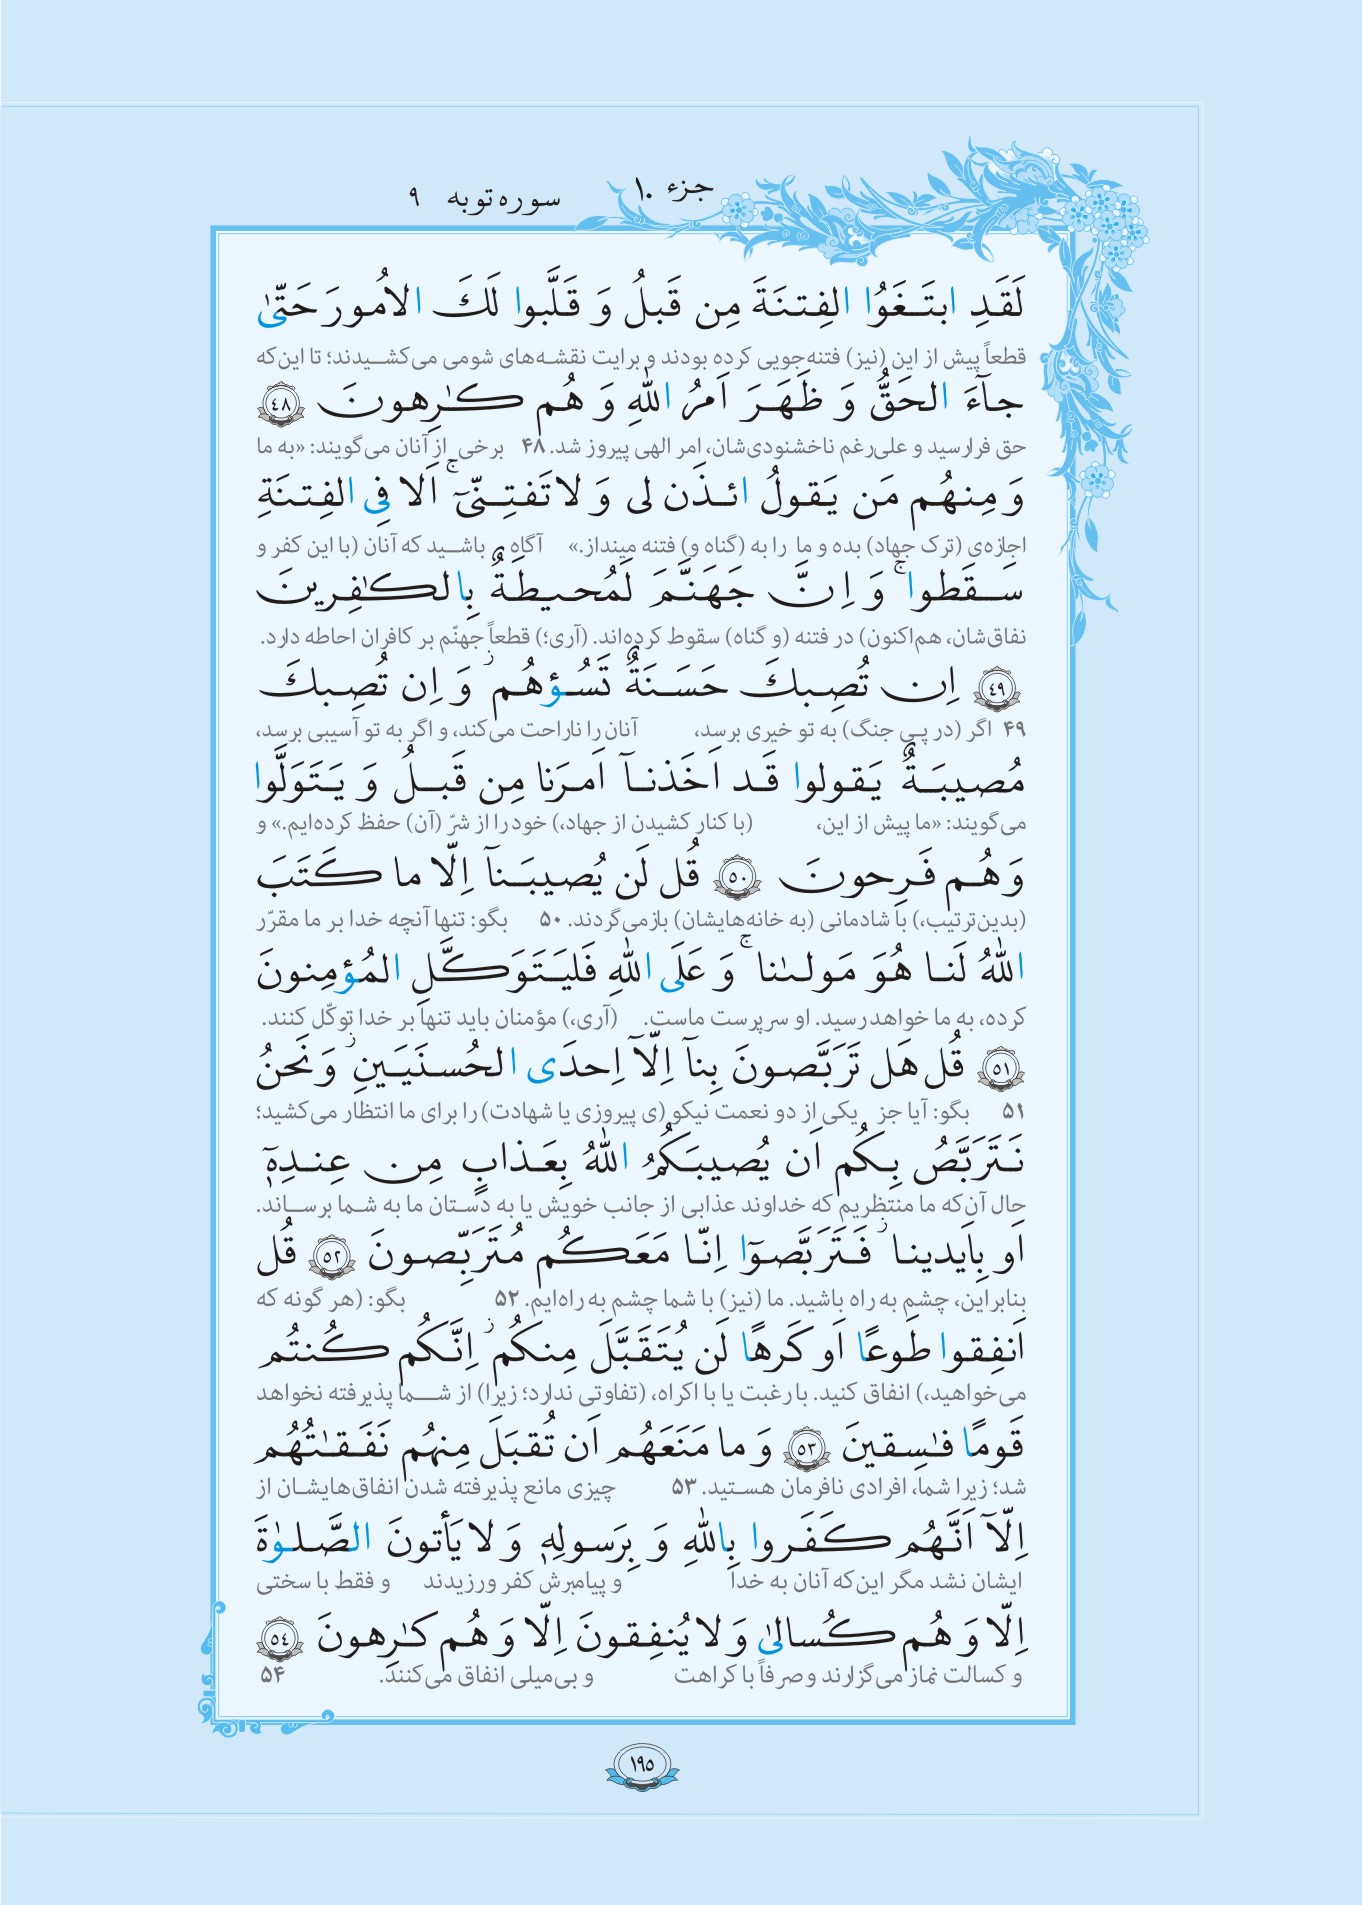 جزء ۱۰ سوره توبه ۹
لَقَدِ ابتَغَوُا الفِتنَةَ مِن قَبلُ وَ قَلَّبوا لَكَ الاُمورَ حَتّىٰ
قطعاً پیش از این (نیز) فتنه‌جویی کرده بودند و برایت نقشه‌های شومی می‌کشیدند؛ تا این‌که
جآءَ الحَقُّ وَ ظَهَرَ اَمرُ اللّٰهِ وَ هُم كٰرِهونَ ﴿٤٨﴾
حق فرارسید و علی‌رغم ناخشنودی‌شان، امر الهی پیروز شد. ۴۸ برخی از آنان می‌گویند: «به ما
وَ مِنهُم مَن يَقولُ ائذَن لی وَ لا تَفتِنّیٓ ۚ اَلا فِی الفِتنَةِ
اجازه‌ی (ترک جهاد) بده و ما را به (گناه و) فتنه مینداز.» آگاه باشید که آنان (با این کفر و
سَقَطوا ۚ وَ اِنَّ جَهَنَّمَ لَمُحيطَةٌ بِالكٰفِرينَ
نفاق‌شان، هم‌اکنون) در فتنه (و گناه) سقوط کرده‌اند. (آری؛) قطعاً جهنّم بر کافران احاطه دارد.
﴿٤٩﴾ اِن تُصِبكَ حَسَنَةٌ تَسُؤهُم ۖ وَ اِن تُصِبكَ
۴۹ اگر (در پی جنگ) به تو خیری برسد، آنان را ناراحت می‌کند، و اگر به تو آسیبی برسد،
مُصيبَةٌ يَقولوا قَد اَخَذنآ اَمرَنا مِن قَبلُ وَ يَتَوَلَّوا
می‌گویند: «ما پیش از این، (با کنار کشیدن از جهاد،) خود را از شرّ (آن) حفظ کرده‌ایم.» و
وَ هُم فَرِحونَ ﴿٥٠﴾ قُل لَن يُصيبَنآ اِلّا ما كَتَبَ
(بدین‌ترتیب،) با شادمانی (به خانه‌هایشان) بازمی‌گردند. ۵۰ بگو: تنها آنچه خدا بر ما مقرّر
اللّٰهُ لَنا هُوَ مَولىٰنا ۚ وَ عَلَى اللّٰهِ فَليَتَوَكَّلِ المُؤمِنونَ
کرده، به ما خواهد رسید. او سرپرست ماست. (آری،) مؤمنان باید تنها بر خدا توکّل کنند.
﴿٥١﴾ قُل هَل تَرَبَّصونَ بِنآ اِلّآ اِحدَى الحُسنَيَينِ ۖ وَ نَحنُ
۵۱ بگو: آیا جز یکی از دو نعمت نیکو (ی پیروزی یا شهادت) را برای ما انتظار می‌کشید؛
نَتَرَبَّصُ بِكُم اَن يُصيبَكُمُ اللّٰهُ بِعَذابٍ مِن عِندِهٖٓ
حال آن‌که ما منتظریم که خداوند عذابی از جانب خویش یا به دستان ما به شما برساند.
اَو بِاَيدينا ۖ فَتَرَبَّصوٓا اِنّا مَعَكُم مُتَرَبِّصونَ ﴿٥٢﴾ قُل
بنابراین، چشم به راه باشید. ما (نیز) با شما چشم به راه‌ایم. ۵۲ بگو: (هر گونه که
اَنفِقوا طَوعًا اَو كَرهًا لَن يُتَقَبَّلَ مِنكُم ۖ اِنَّكُم كُنتُم
می‌خواهید،) انفاق کنید. با رغبت یا با اکراه، (تفاوتی ندارد؛ زیرا) از شما پذیرفته نخواهد
قَومًا فٰسِقينَ ﴿٥٣﴾ وَ ما مَنَعَهُم اَن تُقبَلَ مِنهُم نَفَقٰتُهُم
شد؛ زیرا شما، افرادی نافرمان هستید. ۵۳ چیزی مانع پذیرفته شدن انفاق‌هایشان از
اِلّآ اَنَّهُم كَفَروا بِاللّٰهِ وَ بِرَسولِهٖ وَ لا يَأتونَ الصَّلوٰةَ
ایشان نشد مگر این‌که آنان به خدا و پیامبرش کفر ورزیدند و فقط با سختی
اِلّا وَ هُم كُسالىٰ وَ لا يُنفِقونَ اِلّا وَ هُم كٰرِهونَ ﴿٥٤﴾
و کسالت نماز می‌گزارند و صرفاً با کراهت و بی‌میلی انفاق می‌کنند. ۵۴
۱۹۵